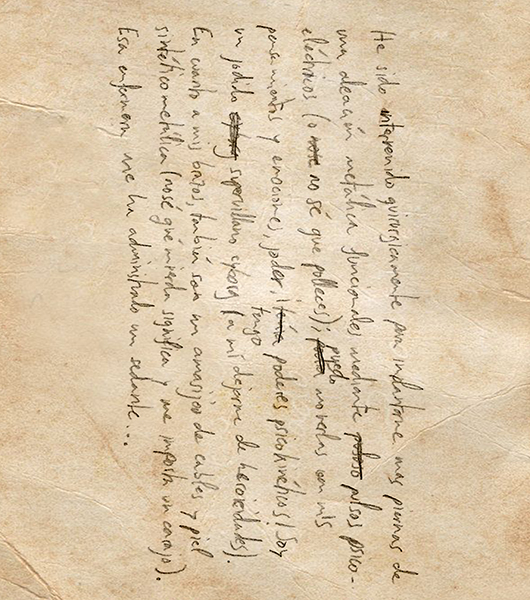 He sido intervenido quirúrgicamente para industrarme mas piernas de
una aleación metálica funcionales mediante pulsos psico-
eléctricos (o no sé que polleces); puedo moverlas con mis
pensamientos y emociones, joder ¡tengo poderes psicokinéticos! Soy
un jodido supervillano cyborg (a mi dejarme de heroicidades).
En cuanto a mis brazos, también son un amasijo de cables y piel
sintético metálica (no sé qué mierda significa y me importa un carajo).
Esa enfermera me ha administrado un sedante...